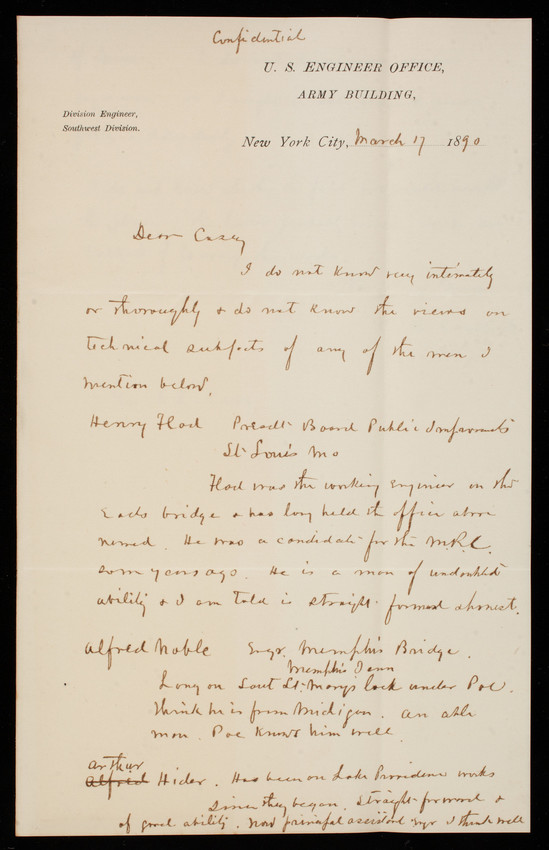 Confidential
U. S. ENGINEER OFFICE,
ARMY BUILDING,
Division Engineer,
Southwest Division.
New York City, March 17 1890
Dear Casey
I do not know very intimately
or thoroughly & do not know the views on
technical subjects of any of the men I
mention below.
Henry Flad Presdt Board Public Improvements
St Louis Mo
Flad was the working engineer on the
Eads bridge & has long held the office above
named. He was a candidate for the M.R.C.
some years ago. He is a man of undoubted
ability & I am told is straight forward & honest.
Alfred Noble Engr. Memphis Bridge.
Memphis Tenn
Long on Saut St. Mary's lock under Poe.
Think he is from Michigan. An able
man. Poe knows him well.
Arthur
Alfred Hider. Has been on Lake Providence works
since they began. Straight forward &
of good ability. Now principal assistant engr I think well